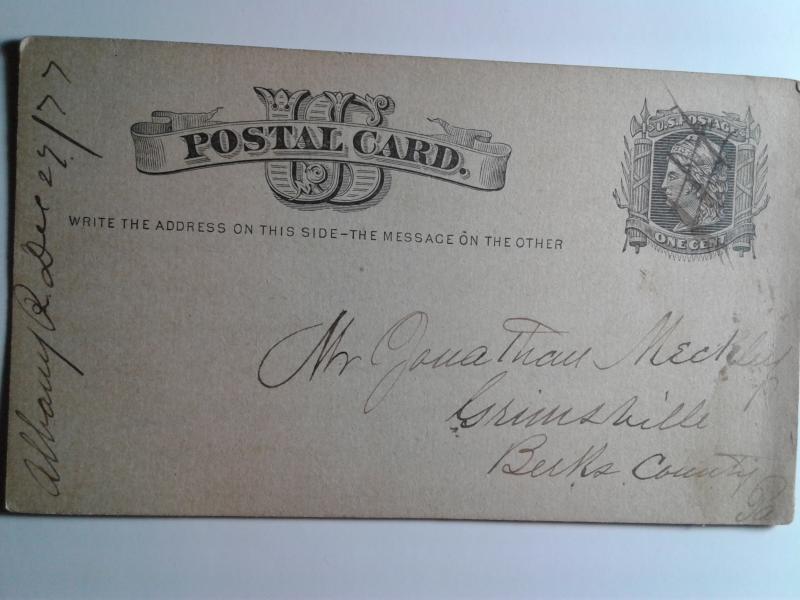 US
POSTAL CARD.
WRITE THE ADDRESS ON THIS SIDE—THE MESSAGE ON THE OTHER
U.S. POSTAGE
ONE CENT
Mr Jonathan Meckley
Grimsville
Berks. County
Pa
Albany Pa. Dec 27/77